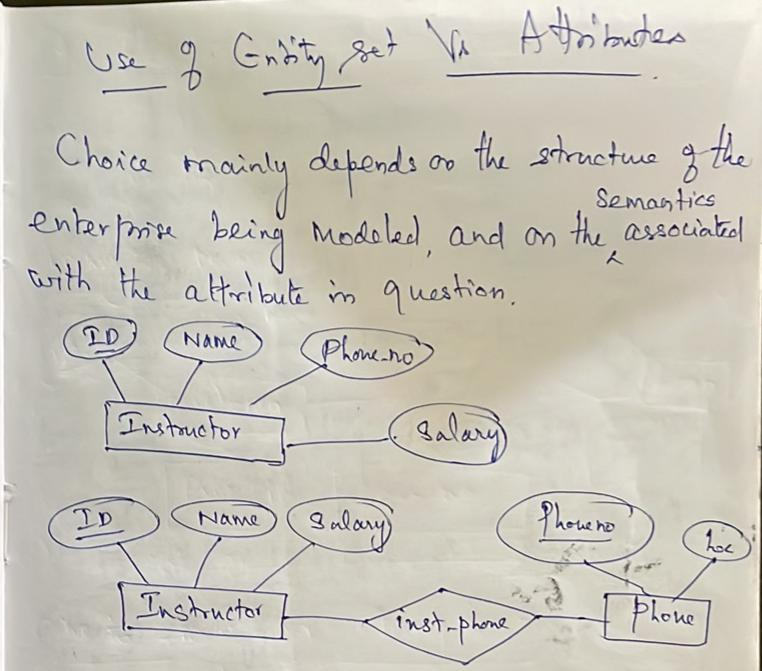 Use of Entity set Vs Attributes
Choice mainly depends on the structure of the
semantics
enterprise being modeled, and on the associated
with the attribute in question.
ID Name Phone-no
Instructor Salary
ID Name Salary Phone no Loc
Instructor inst-phone Phone